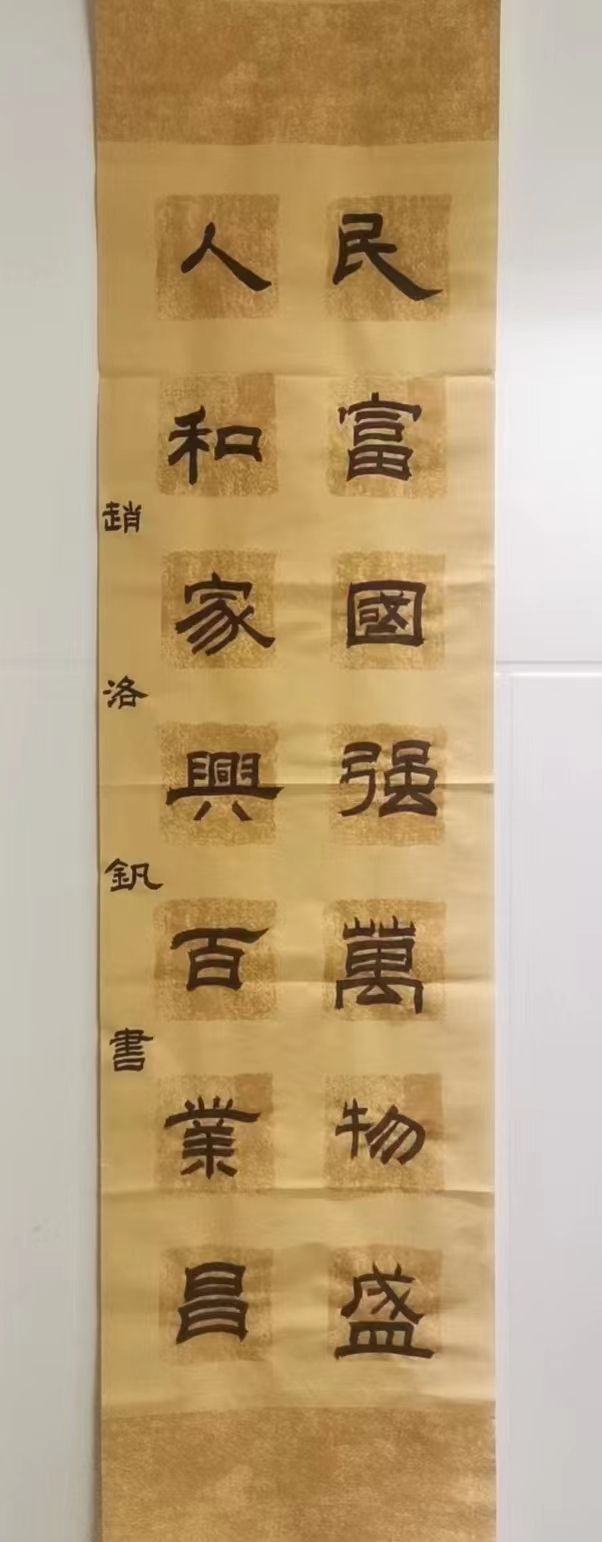 民富國强萬物盛
人和家興百業昌
趙洛釩書